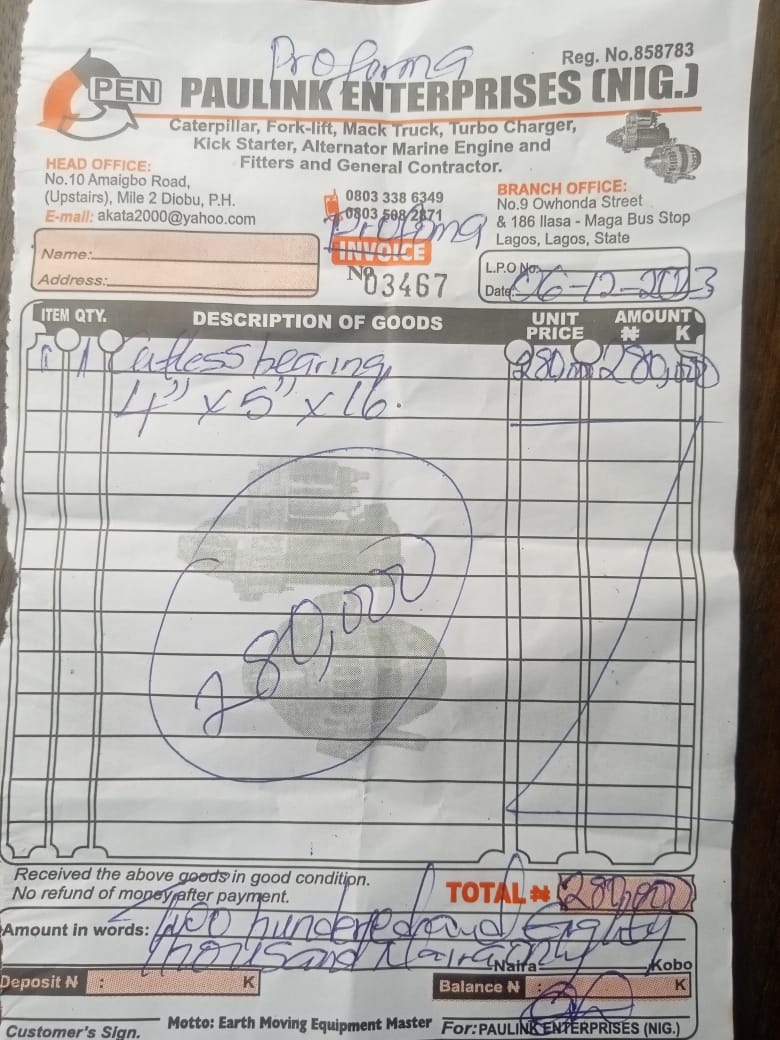 Proforma
Reg. No.858783
PEN
PAULINK ENTERPRISES (NIG.)
Caterpillar, Fork-lift, Mack Truck, Turbo Charger,
Kick Starter, Alternator Marine Engine and
Fitters and General Contractor.
HEAD OFFICE:
No.10 Amaigbo Road,
(Upstairs), Mile 2 Diobu, P.H.
E-mail: akata2000@yahoo.com
0803 338 6349
0803 508 2871
BRANCH OFFICE:
No.9 Owhonda Street
& 186 Ilasa - Maga Bus Stop
Lagos, Lagos, State
Proforma
INVOICE
No 03467
Name:
Address:
L.P.O No:
Date: 06-12-2023
ITEM QTY. DESCRIPTION OF GOODS UNIT PRICE AMOUNT ₦ K
1 1 Cutless bearing 280,000 280,000
4" x 5" x 16.
280,000
Received the above goods in good condition.
No refund of money after payment.
TOTAL ₦ 280,000
Amount in words: Two hundered and Eighty
Thousand Naira only
Naira Kobo
Deposit ₦ : K
Balance ₦ : K
Customer's Sign.
Motto: Earth Moving Equipment Master
For: PAULINK ENTERPRISES (NIG.)